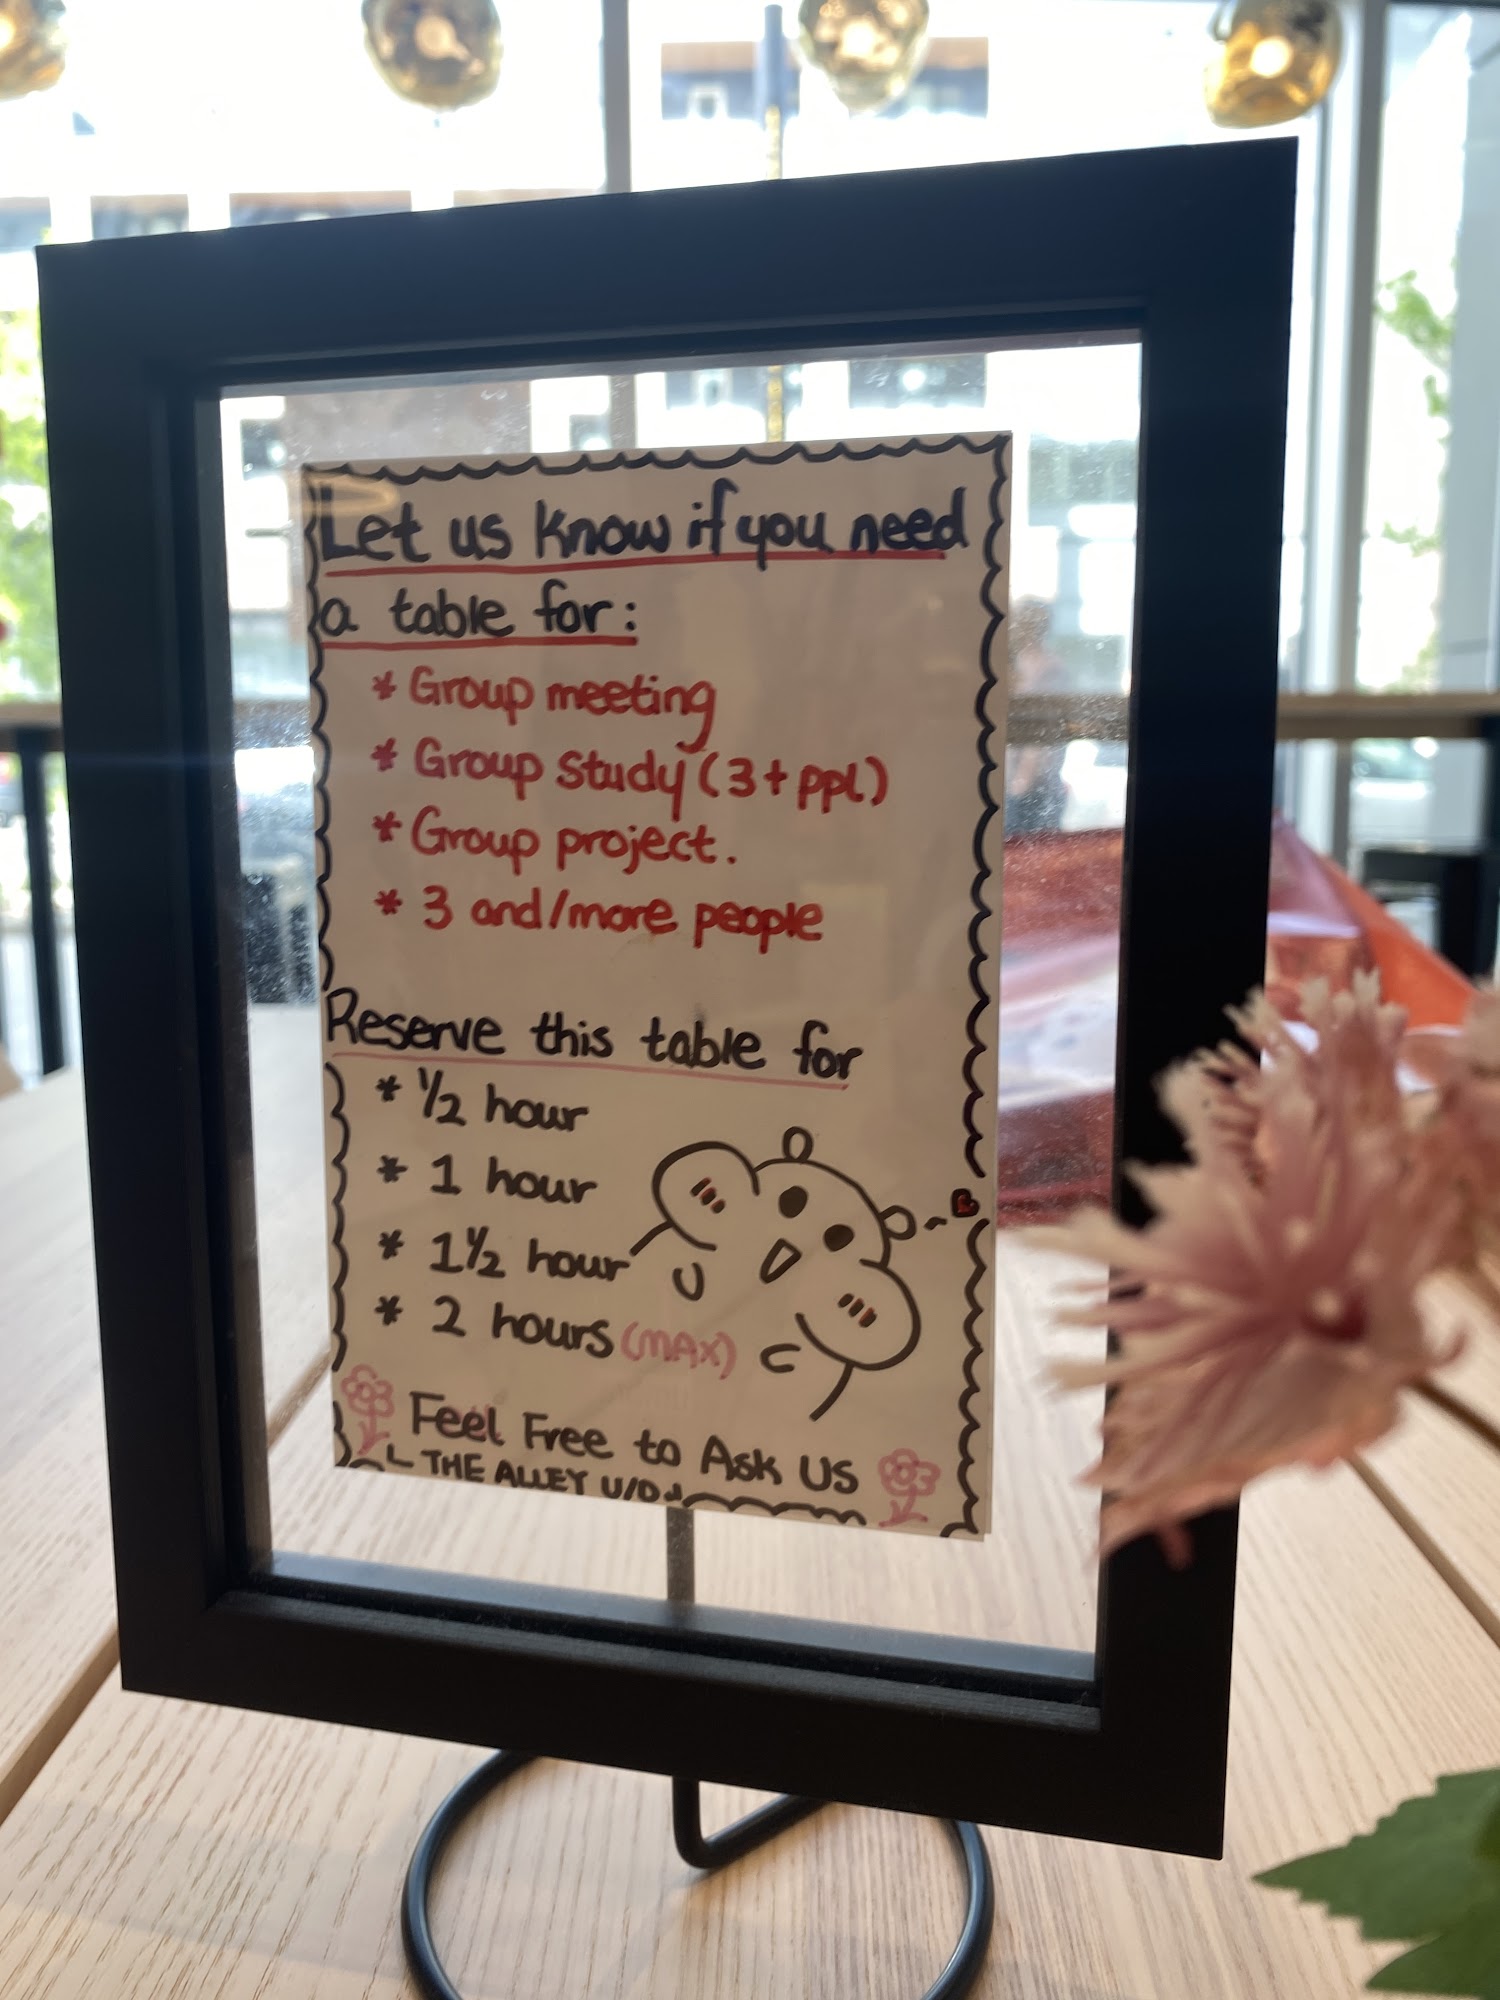 Let us know if you need
a table for:
* Group meeting
* Group Study (3+ ppl)
* Group project.
* 3 and/more people
Reserve this table for
* 1/2 hour
* 1 hour
* 1 1/2 hour
* 2 hours (MAX)
Feel Free to Ask US
THE ALLEY U/D